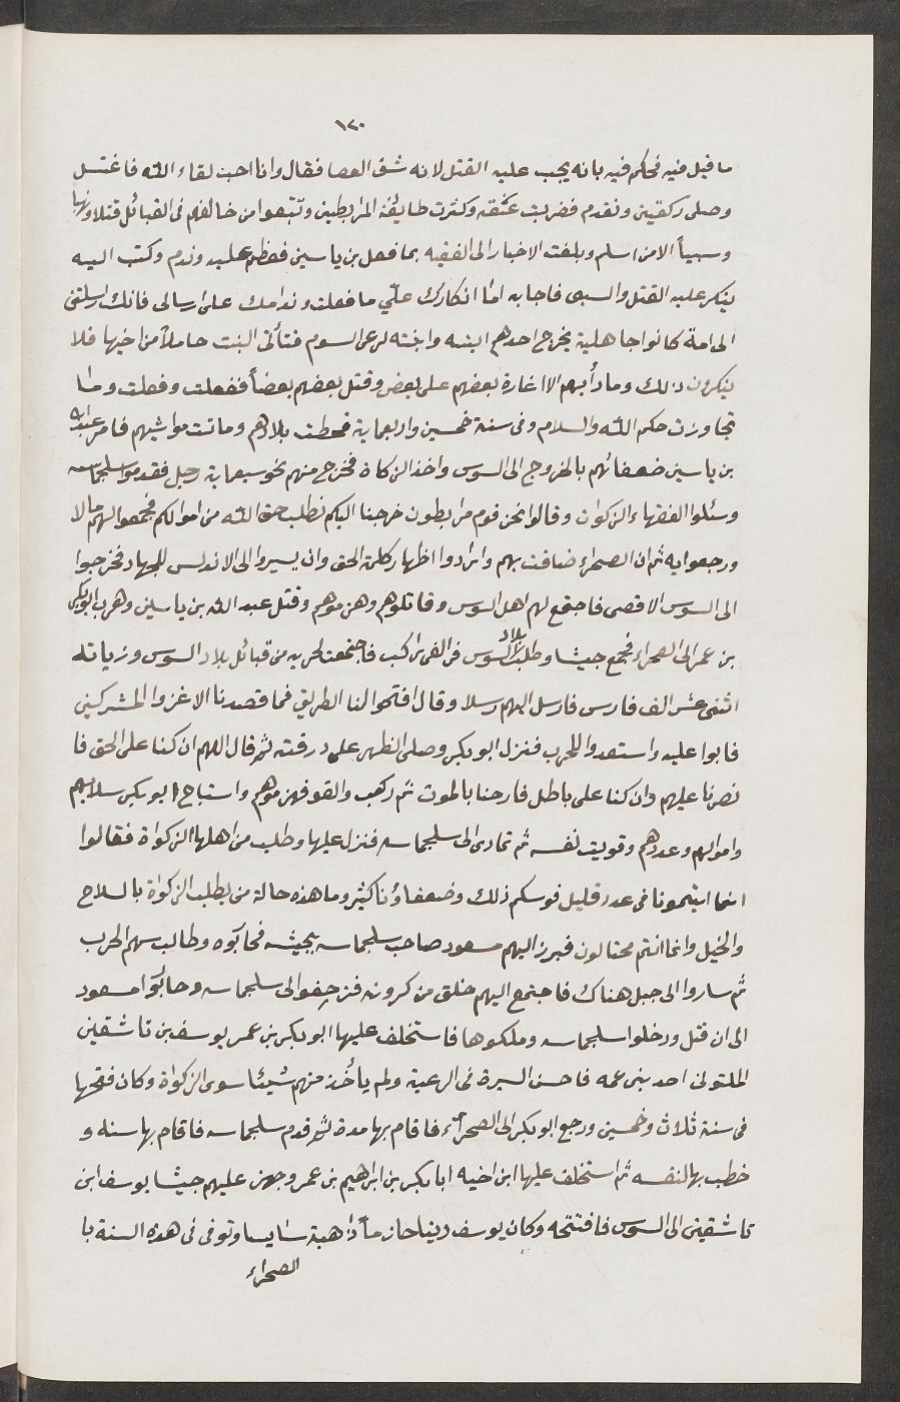 ١٢٠
ما قيل فيه فحكم فيه بانه يجب عليه القتل لانه شق العصا فقال وانا احب لقاء الله فاغتسل
وصلى ركعتين وتقدم فضربت عنقه وكثرت طايفة المرابطين وتتبعوا من خالفهم فى القبائل قتلا ونهبا
وسبياً الا من اسلم وبلغت الاخبار الى الفقيه بما فعل بن ياسين فعظم عليه وندم وكتب اليه
ينكر عليه القتل والسبى فاجابه اما انكارك علىّ ما فعلت وندامك على ارسالى فانك ارسلتنى
الى امة كانوا جاهلية يخرج احدهم ابنه وابنته لرعى السوم فتأتى البنت حاملاً من اخيها فلا
ينكرون ذلك وما دأبهم الا اغارة بعضهم على بعض وقتل بعضهم بعضاً ففعلت وفعلت وما
تجاوزت حكم الله والسلام وفى سنة خمسين واربعماية قحطت بلادهم وماتت مواشيهم فامر عبد الله
بن ياسين ضعفائهم بالخروج الى السوس واخذ الزكاة فخرج منهم نحو سبعماية رجل فقدموا سلجماسه
وسئلوا الفقهاء الزكوات وقالوا نحن قوم مرابطون خرجنا اليكم نطلب حق الله من اموالكم فجمعوا لهم مالا
ورجعوا به ثم ان الصحراء ضاقت بهم وارادوا اظهار كلمة الحق وان يسيروا الى الاندلس للجهاد فخرجوا
الى السوس الاقصى فاجتمع لهم اهل السوس وقاتلوهم وهزموهم وقتل عبد الله بن ياسين وهرب ابو بكر
بن عمر الى الصحراء فجمع جيشا وطلب بلاد السوس فى الفى راكب فاجتمعت لحربه من قبائل بلاد السوس وزناته
اثنى عشر الف فارس فارسل اليهم رسلا وقال افتحوا لنا الطريق فما قصدنا الا غزوا المشركين
فابوا عليه واستعدوا للحرب فنزل ابو بكر وصلى الظهر على درقته ثم قال اللهم ان كنا على الحق فا
نصرنا عليهم وان كنا على باطل فارحنا بالموت ثم ركب والتقوا فهزموهم واستباح ابو بكر سلابهم
واموالهم وعددهم وقويت نفسه ثم تمادى الى سلجماسه فنزل عليها وطلب من اهلها الزكواة فقالوا
انما اتيتمونا فى عدد قليل فوسعكم ذلك وضعفاؤنا كثير وما هذه حالة من يطلب الزكواة بالسلاح
والخيل وانما انتم محتالون فبرز اليهم مسعود صاحب سلجماسه بجيشه فحابوه وطالب بينهم الحرب
ثم ساروا الى جبل هناك فاجتمع اليهم خلق من كرونه فزحفو الى سلجماسه وحابوا مسعود
الى ان قتل ودخلوا سلجماسه وملكوها فاستخلف عليها ابو بكر بن عمر يوسف بن تاشقين
الملتونى احد بنى عمه فاحسن السيرة فى الرعية ولم يأخذ منهم شيئا سوى الزكواة وكان فتحها
فى سنة ثلاث وخمسين ورجع ابو بكر الى الصحراء فاقام بها مدة ثم قدم سلجماسه فاقام بها سنه و
خطب بها لنفسه ثم استخلف عليها ابن اخيه ابا بكر بن ابراهيم بن عمر وجهز عليهم جيشا يوسف ابن
تاشقين الى السوس فافتتحه وكان يوسف دينا حازماً داهية سايسا وتوفى فى هذه السنة با
الصحراء